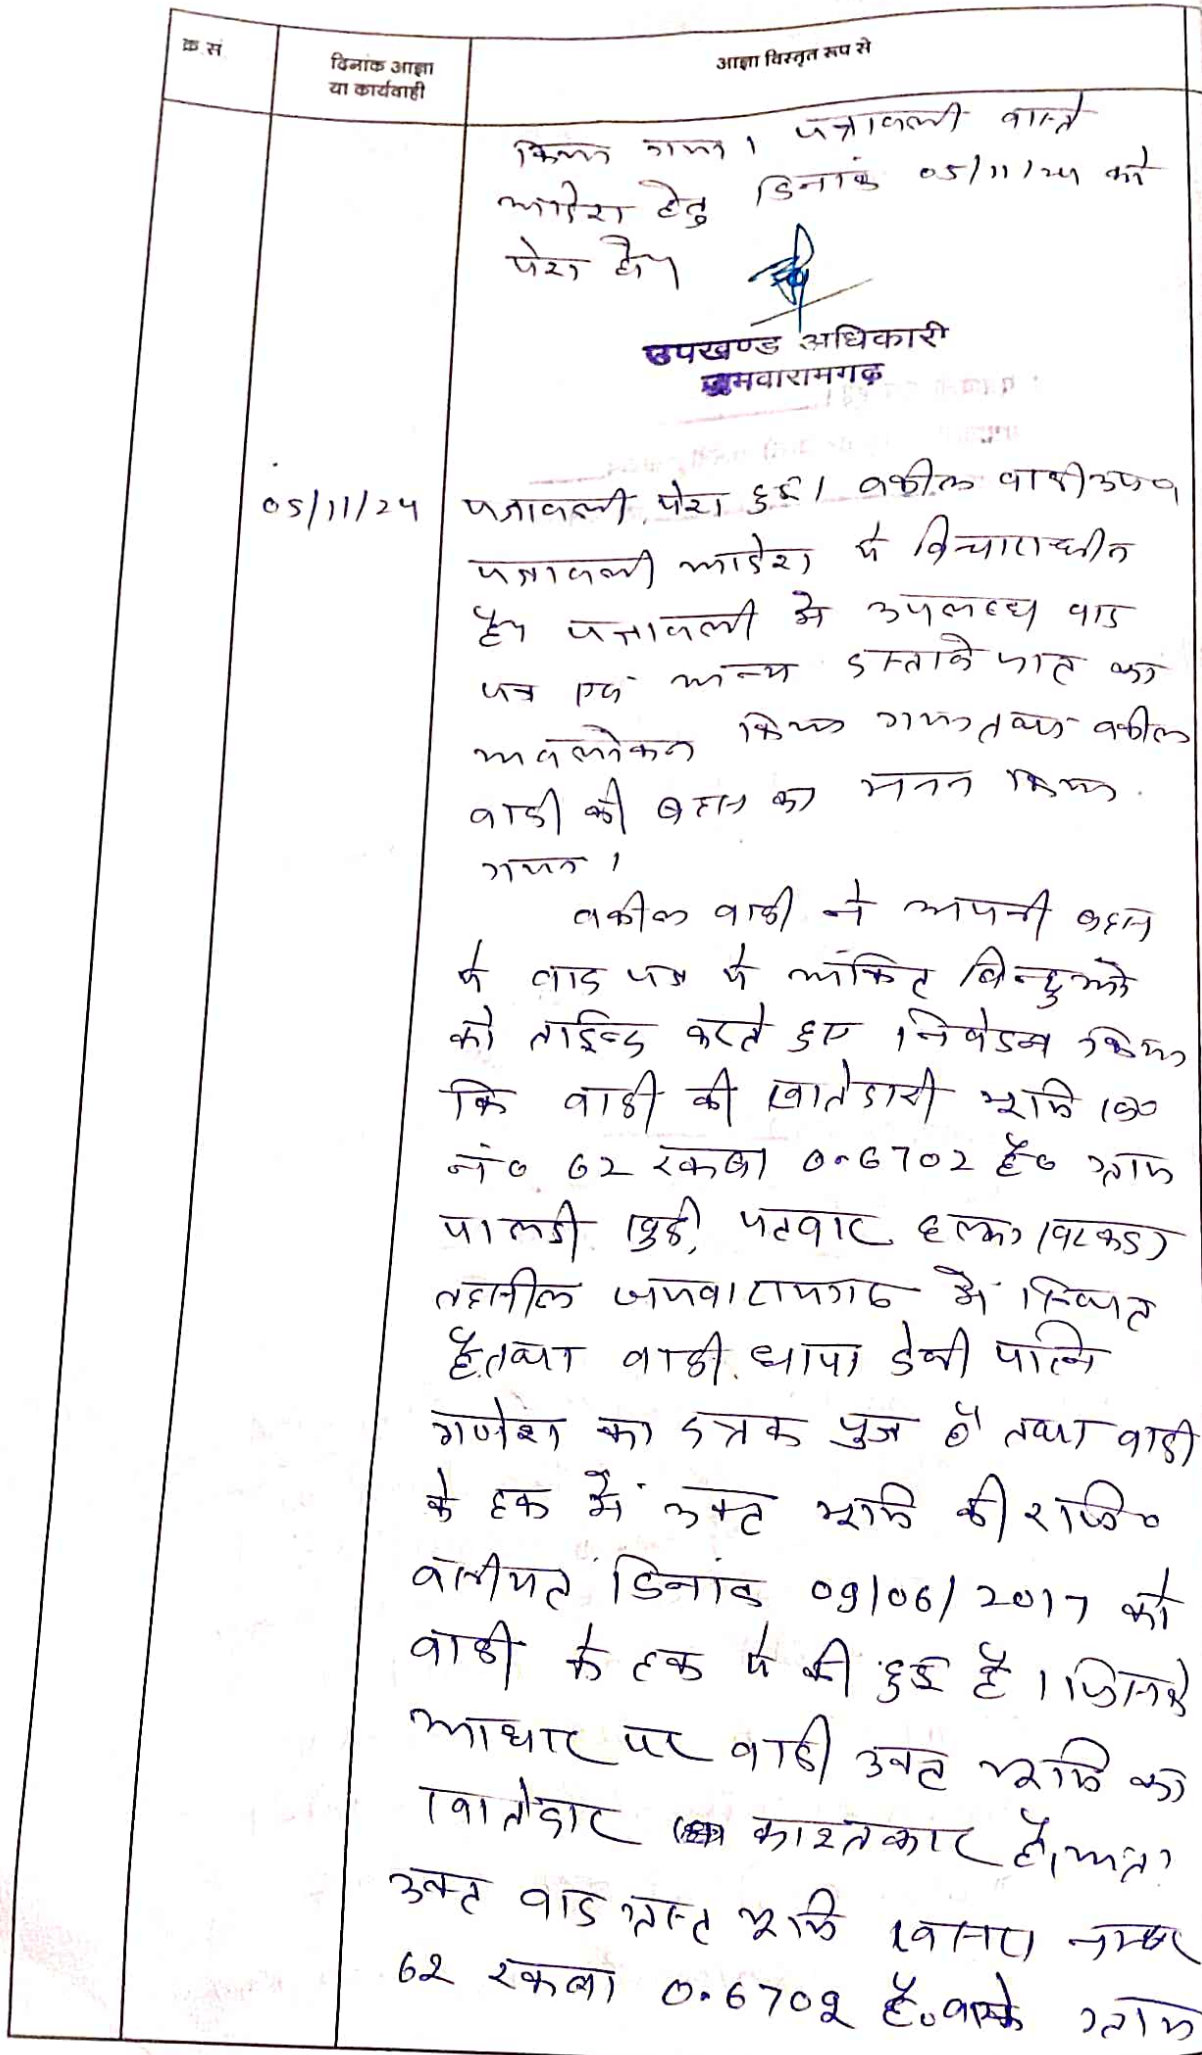 क्र.सं.
दिनांक आज्ञा
या कार्यवाही
आज्ञा विस्तृत रूप से
किया गया। पत्रावली वास्ते
आदेश हेतु दिनांक 05/11/24 को
पेश हो।
उपखण्ड अधिकारी
जमवारामगढ़
05/11/24 पत्रावली पेश हुई। वकील वादी उप०
पत्रावली आदेश में विचाराधीन
है। पत्रावली में उपलब्ध वाद
पत्र एवं अन्य दस्तावेजात का
अवलोकन किया गया तथा वकील
वादी की बहस का मनन किया
गया।
वकील वादी ने अपनी बहस
में वाद पत्र में अंकित बिन्दुओं
को ताईद करते हुए निवेदन किया
कि वादी की खातेदारी भूमि ख०
नं० 62 रकबा 0.6702 है० ग्राम
पालडी खुर्द, पटवार हल्का
तहसील जमवारामगढ में स्थित
है तथा वादी धापा देवी पत्नि
गणेश का दत्तक पुत्र है तथा वादी
के हक में उक्त भूमि की रजि०
वसीयत दिनांक 09/06/2017 को
वादी के हक में की हुई है। जिसके
आधार पर वादी उक्त भूमि का
खातेदार काश्तकार है, अतः
उक्त वाद ग्रस्त भूमि खसरा नम्बर
62 रकबा 0.6702 है० वाके ग्राम